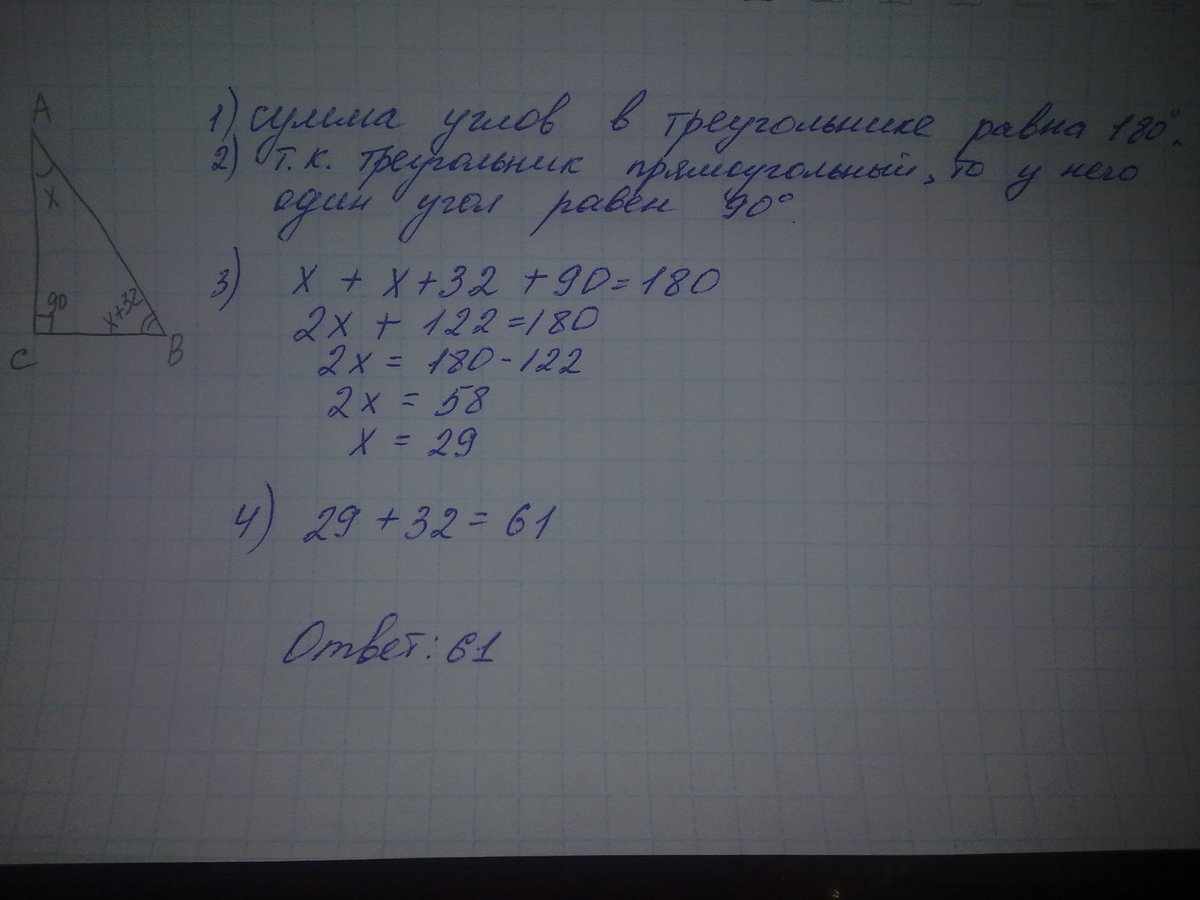 A
x
90
x+32
C
B
1) сумма углов в треугольнике равна 180°.
2) т.к. треугольник прямоугольный, то у него
один угол равен 90°
3) x + x+32 +90=180
2x + 122=180
2x = 180-122
2x = 58
x = 29
4) 29+32= 61
Ответ: 61